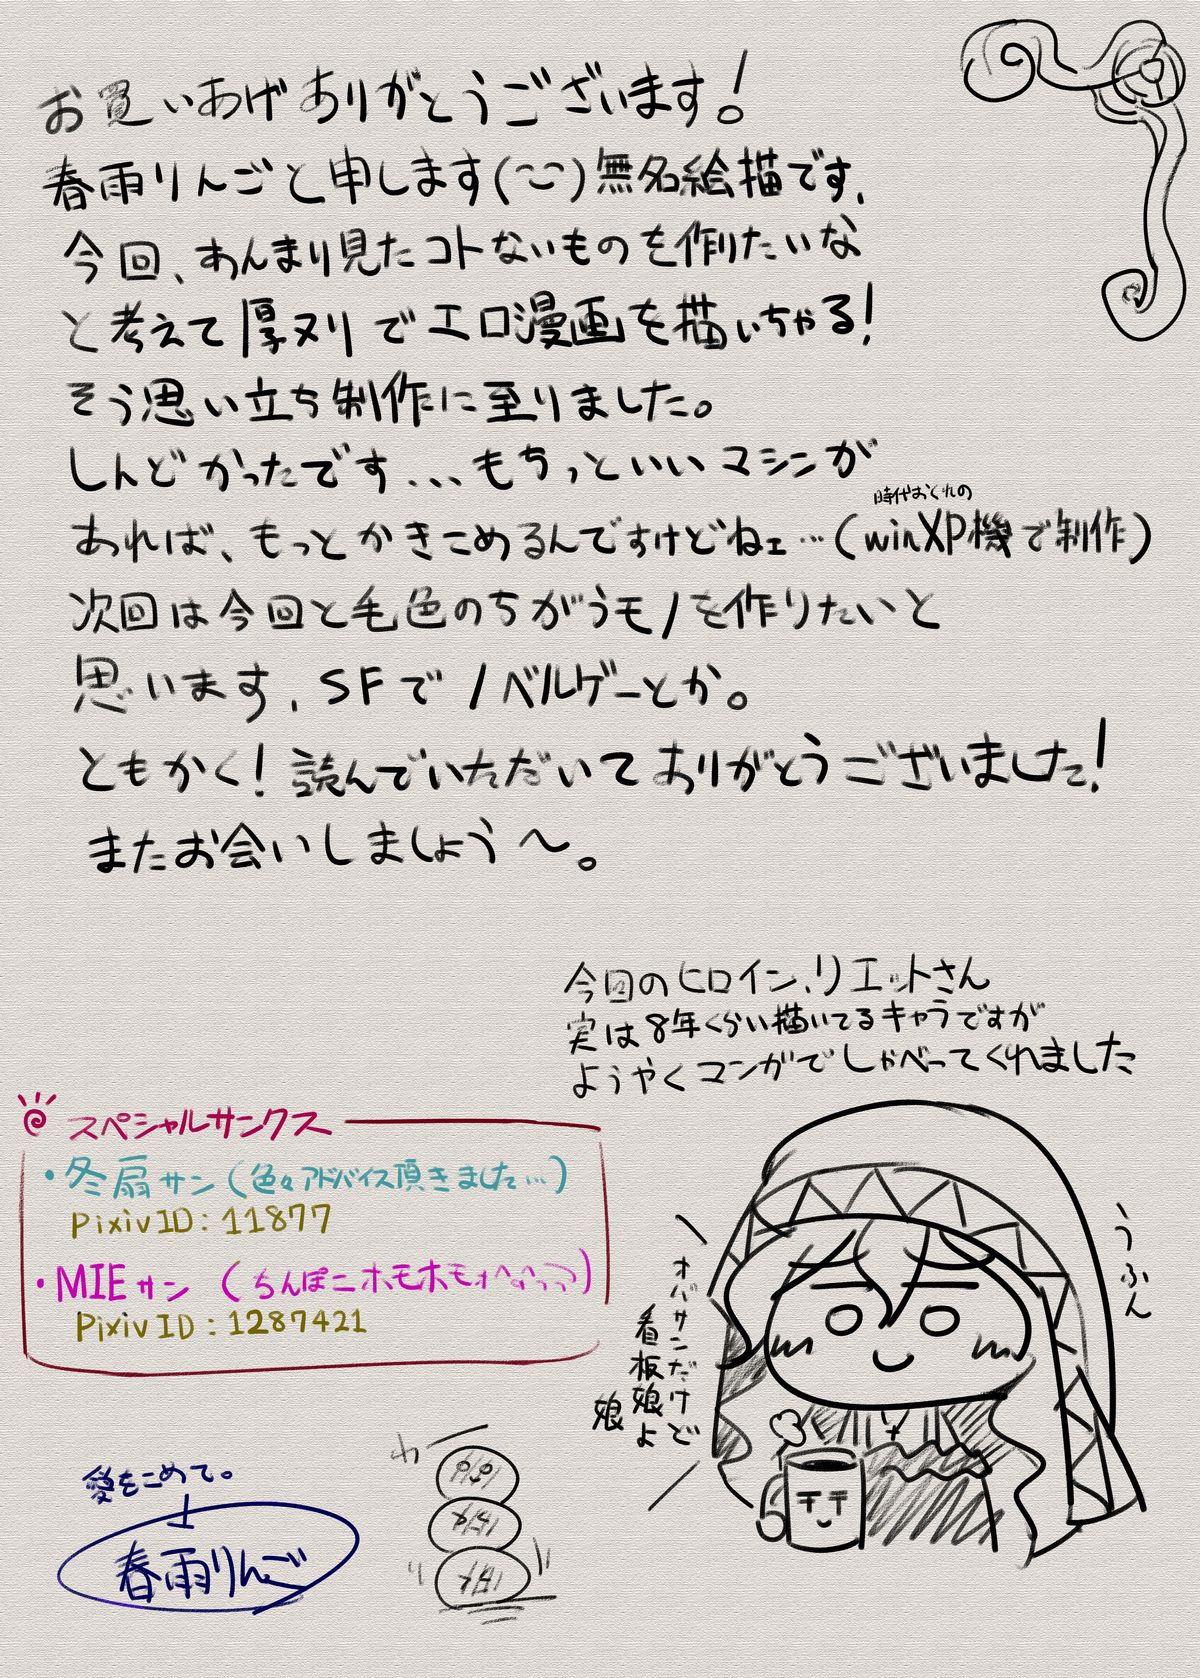 お買いあげありがとうございます!
春雨りんごと申します(^-^)無名絵描です、
今回、あんまり見たコトないものを作りたいな
と考えて厚ヌリでエロ漫画を描いちゃる!
そう思い立ち制作に至りました。
しんどかったです...もちっといいマシンが
時代おくれの
あれば、もっとかきこめるんですけどねェ…(winXP機で制作)
次回は今回と毛色のちがうモノを作りたいと
思います、SFでノベルゲーとか。
ともかく!読んでいただいてありがとうございました!
またお会いしましょう~。
今回のヒロイン、リエットさん
実は8年くらい描いてるキャラですが
ようやくマンガでしゃべってくれました
スペシャルサンクス
・冬扇サン(色々アドバイス頂きました…)
PixivID:11877
・MIEサン(ちんぽニホモホモ
PixivID:1287421
うふん
オバサンだけど
看板娘よ
娘
愛をこめて。
春雨りんご